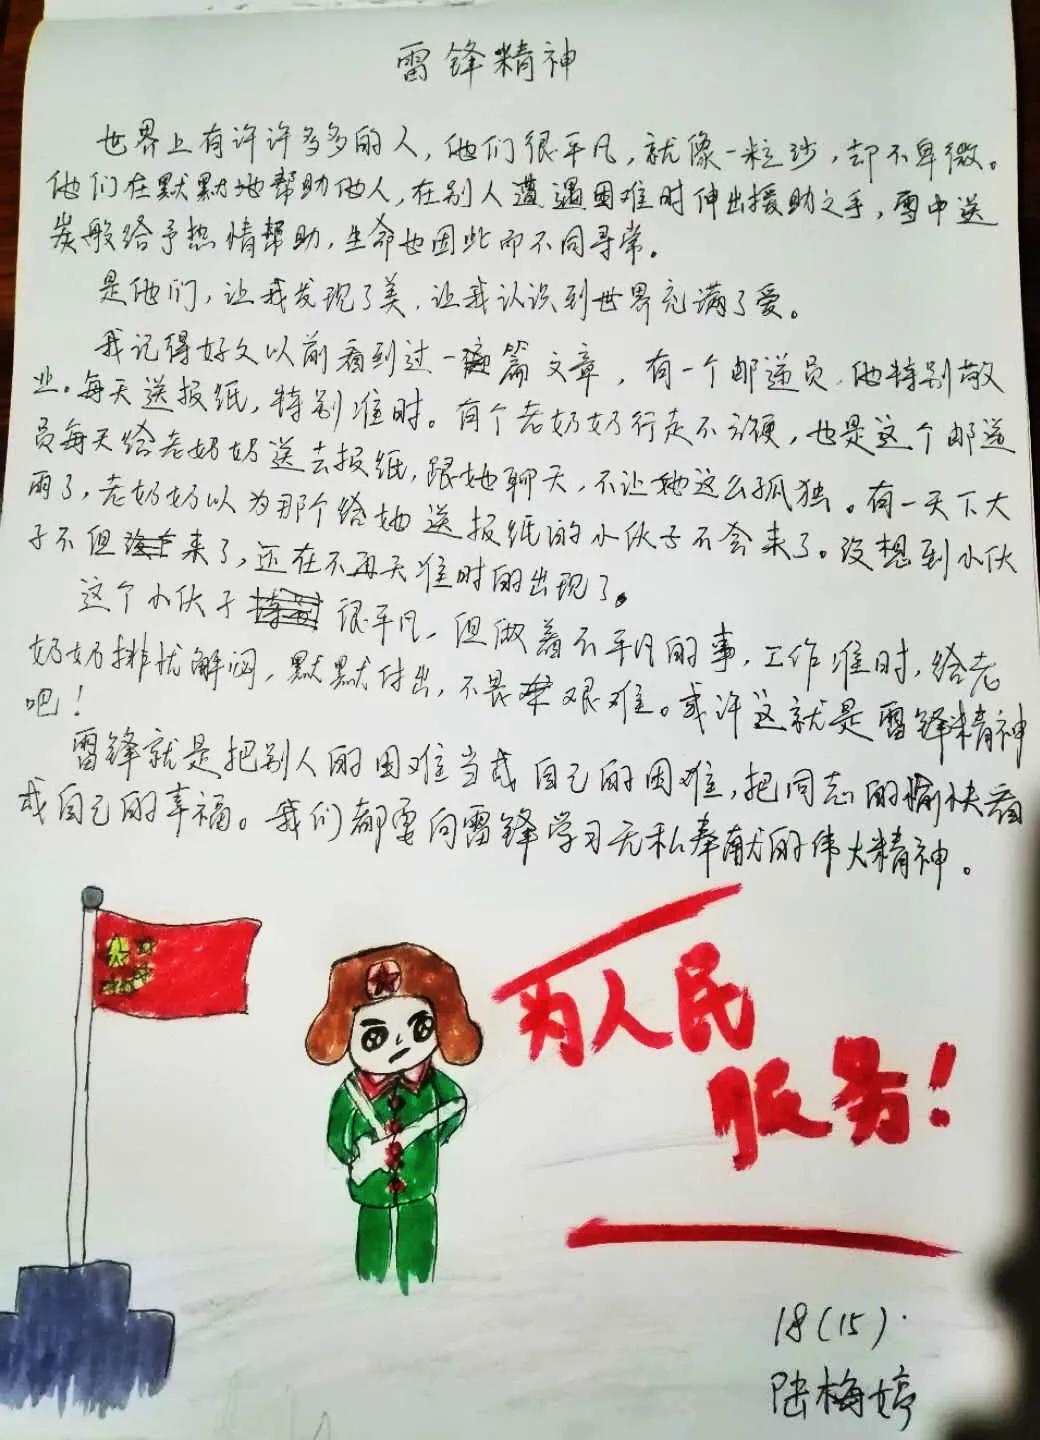 雷锋精神
世界上有许许多多的人，他们很平凡，就像一粒沙，却不卑微。
他们在默默地帮助他人，在别人遭遇困难时伸出援助之手，雪中送
炭般给予热情帮助，生命也因此而不同寻常。
是他们，让我发现了美，让我认识到世界充满了爱。
我记得好久以前看到过一篇文章，有一个邮递员，他特别敬
业。每天送报纸，特别准时。有个老奶奶行走不方便，也是这个邮递
员每天给老奶奶送去报纸，跟她聊天，不让她这么孤独。有一天下大
雨了，老奶奶以为那个给她送报纸的小伙子不会来了。没想到小伙
子不但来了，还在不再天准时的出现了。
这个小伙子很平凡，但做着不平凡的事，工作准时，给老
奶奶排忧解闷，默默付出，不畏艰难。或许这就是雷锋精神
吧！
雷锋就是把别人的困难当成自己的困难，把同志的愉快看
成自己的幸福。我们都要向雷锋学习无私奉献的伟大精神。
为人民
服务！
18(15).
陆梅婷